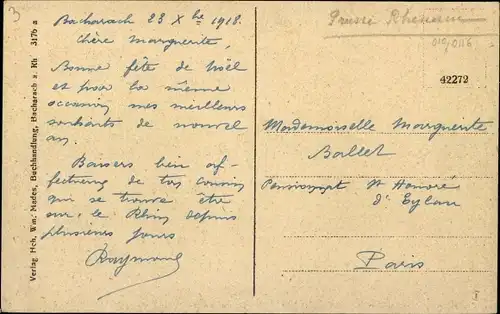 3
Bacharach 23 Xbre 1918.
Chère Marguerite,
Bonne fête de Noël
et pour la même
occasion mes meilleurs
souhaits de nouvel
an.
Baisers bien af-
fectueux de ton cousin
qui se trouve être
sur le Rhin depuis
plusieurs jours
Raymond
Verlag Hch. Wm. Mades, Buchhandlung, Bacharach a. Rh. 3176 a
Prusse Rhénane
0116
42272
Mademoiselle Marguerite
Ballet
St Honoré
d'Eylau
Paris